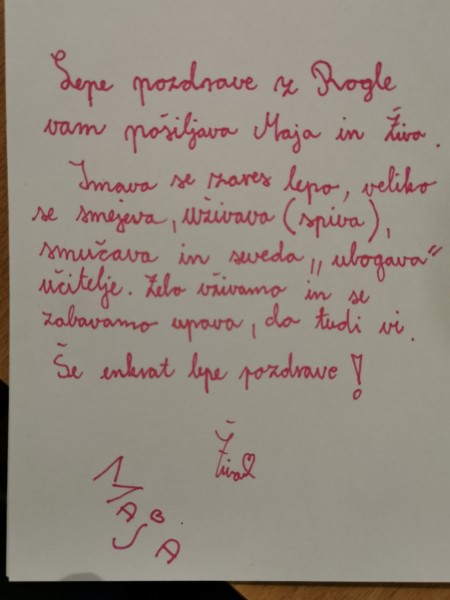 Lepe pozdrave z Rogle
vam pošiljava Maja in Živa.
Imava se zares lepo, veliko
se smejeva, uživava (spiva),
smučava in seveda „ubogava“
učitelje. Zelo uživamo in se
zabavamo upava, da tudi vi.
Še enkrat lepe pozdrave!
Živa♡
MAJA